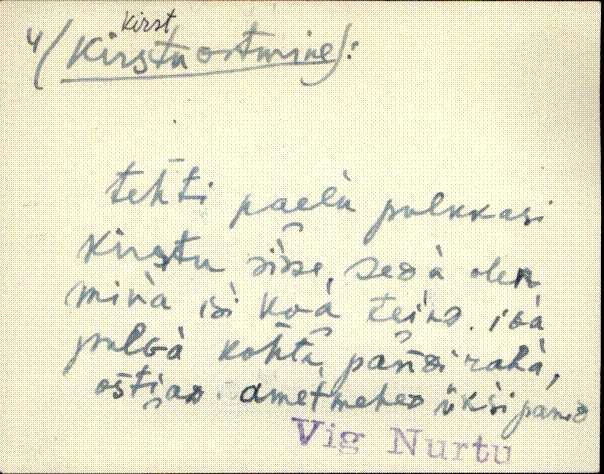 kirst
4/ (Kirstu ostmine):
tehti paelu pulkkasi
kirstu sisse, seda olen
mina isi koa teind. iga
pulga kohta pandi raha,
ostjad. ametmehed üksi panid
Vig Nurtu